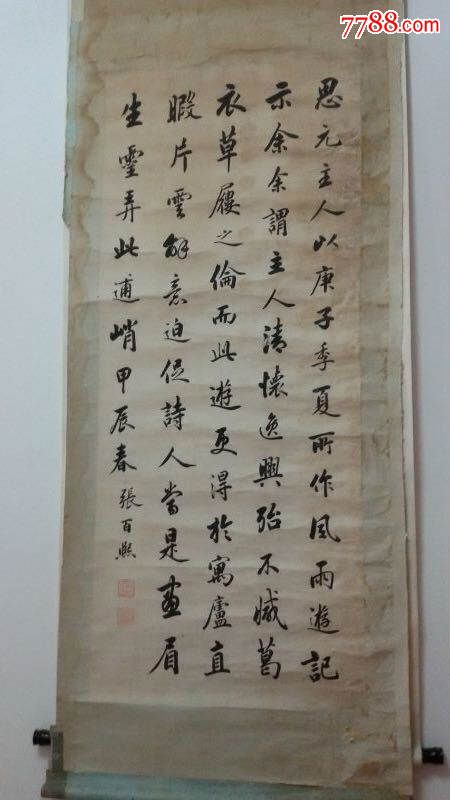 7788.com
思元主人以庚子季夏所作風雨遊記
示余余謂主人清懷逸興殆不減葛
衣草屨之倫而此遊更淂於寓廬直
暇片雲解意迫促詩人當是畫眉
生靈弄此逋峭甲辰春張百熙